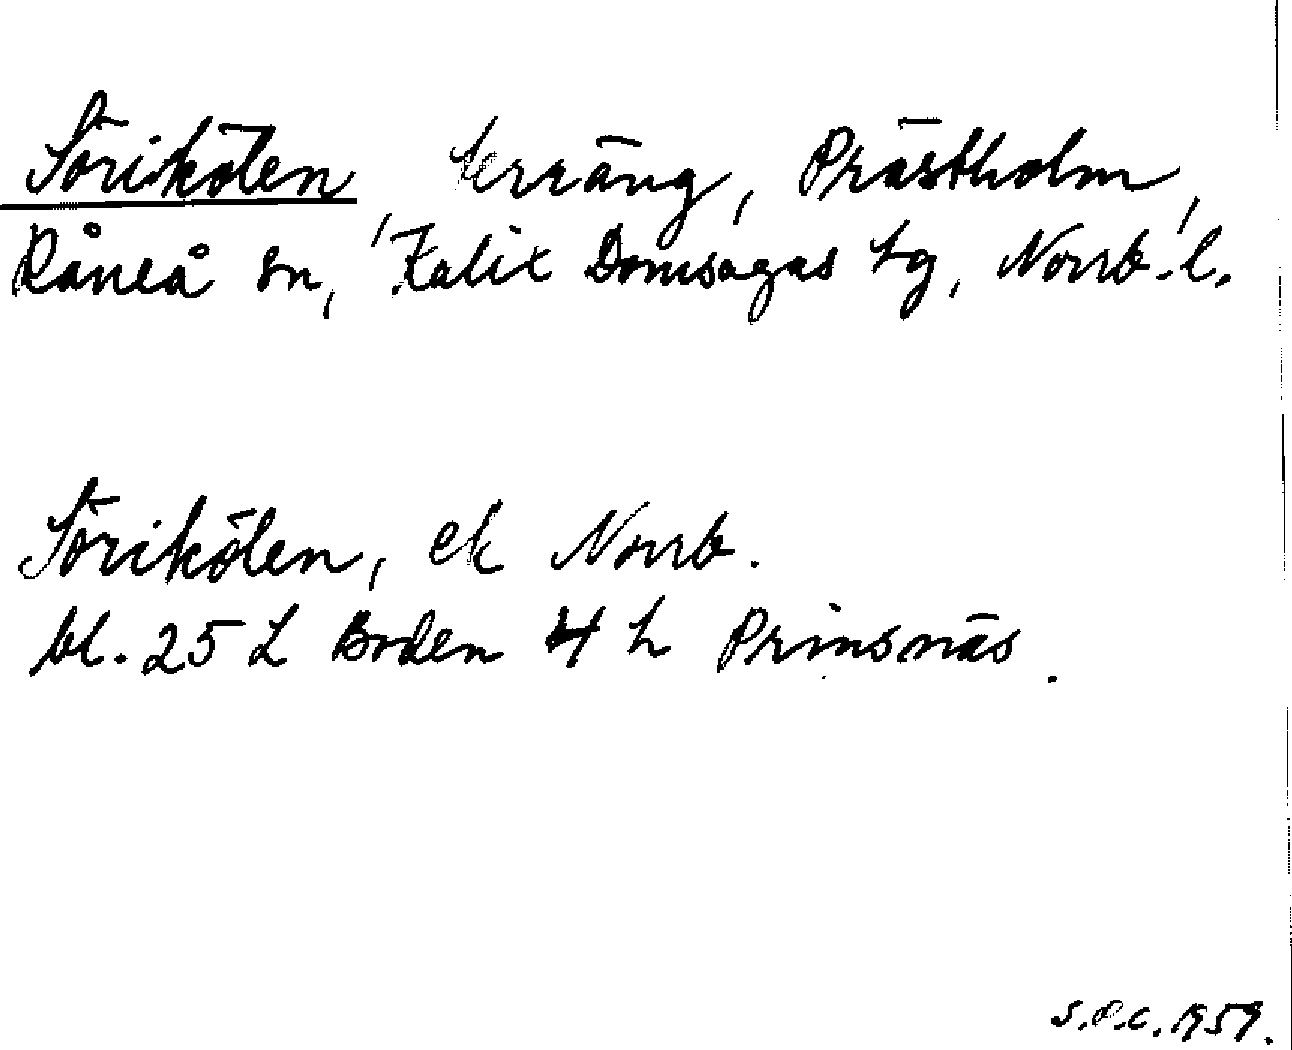 Sörikölen terräng, Prästholm,
Råneå sn, Kalix Domsagas tg, Norrb. l.
Sörikölen, ek Norrb.
bl. 25 L Boden 4 h Prinsnäs.
S.O.C. 1959.